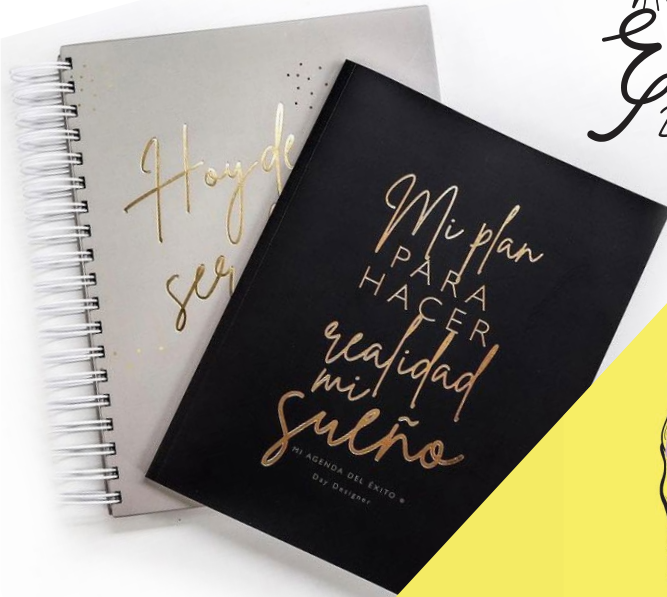 Hoy de
ser
Mi plan
PARA
HACER
realidad
mi
sueño
MI AGENDA DEL ÉXITO ®
Day Designer